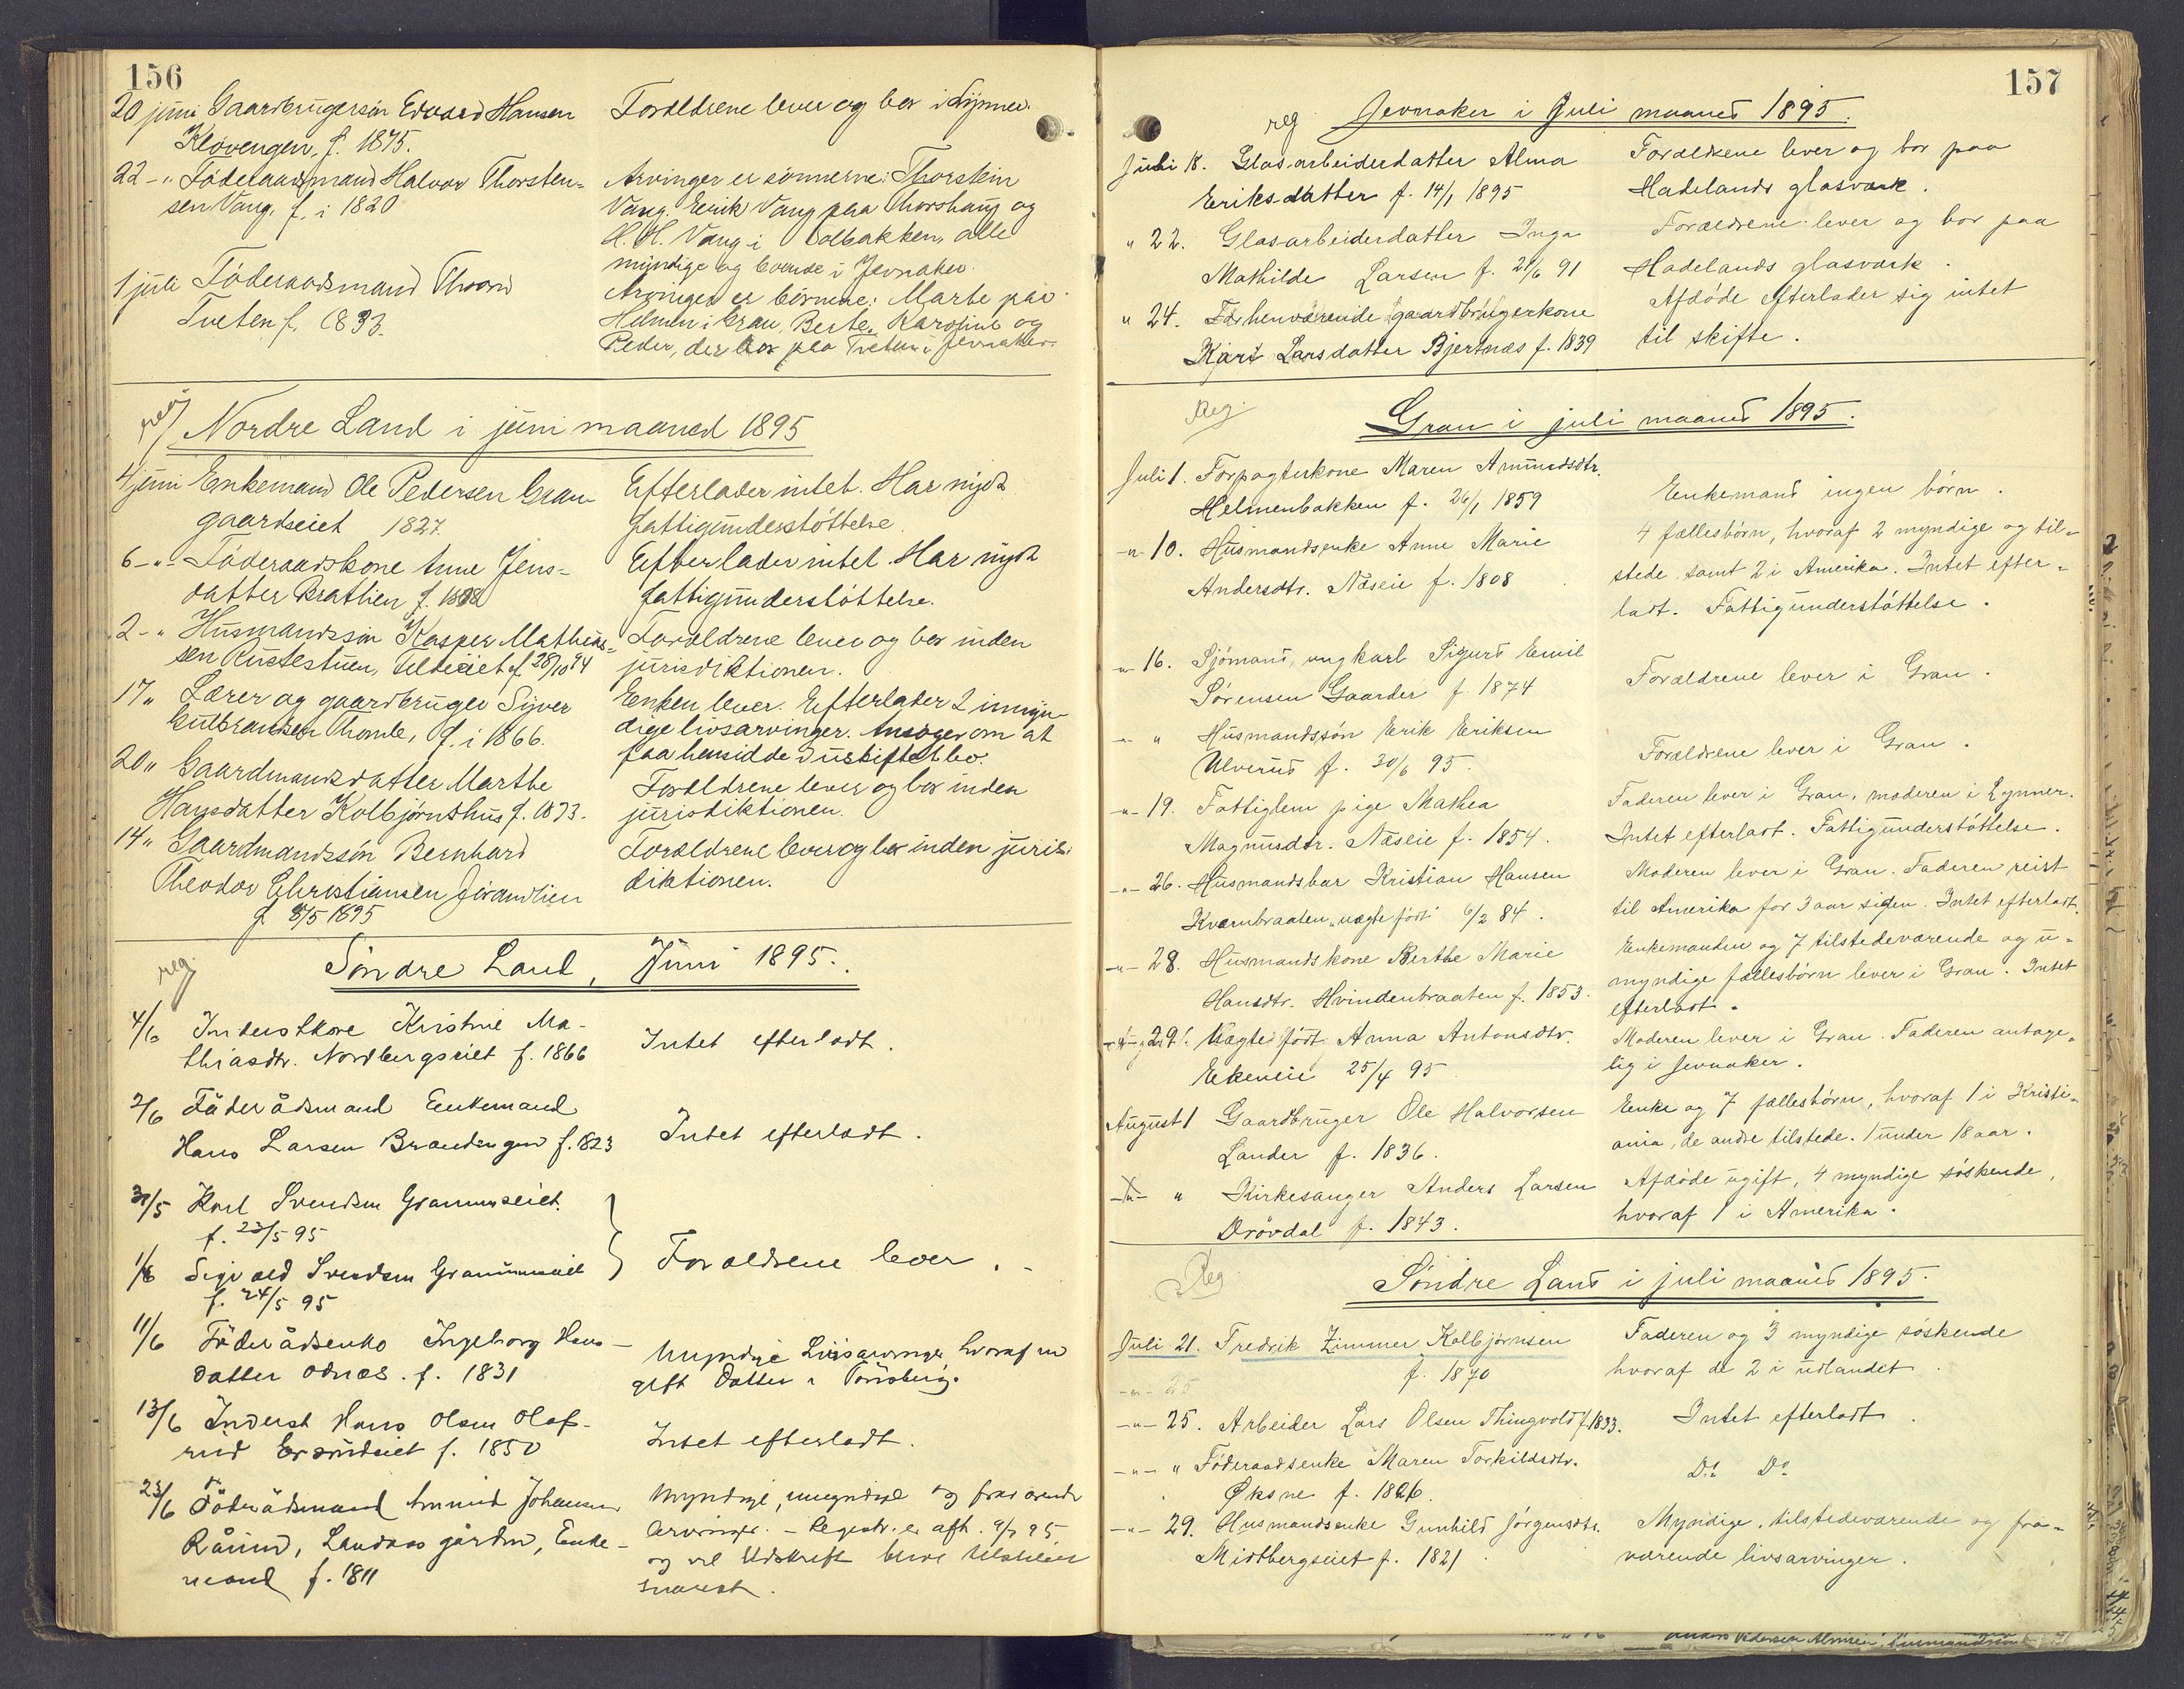 156
20 juni Gaardbrugersøn Edvard Hansen
Klovengen, f. 1875.
Forældrene lever og bor i Lynner.
22 - " Føderaadsmand Halvor Thorsten-
sen Vang, f. i 1820
Arvinger er sønnerne: Thorstein
Vang. Erik Vang paa Thorshaug og
H. H. Vang i Dolbakken, alle
myndige og boende i Jevnaker.
1 juli Føderaadsmand Thord
Tveten f. 1833.
Arvinger er børnene: Marte paa
Helmen i Gran, Berte, Karoline og
Peder, der bor paa Tveten i Jevnaker.
reg
Nordre Land i juni maaned 1895
4 juni Enkemand Ole Pedersen Gran
gaardseiet 1827.
Efterlader intet. Har nydt
fattigunderstøttelse.
6 - " - Føderaadskone Anne Jens-
datter Brathen f. 1808
Efterlader intet. Har nydt
fattigunderstøttelse.
2 - " Husmandssøn Kasper Mathias-
sen Rustestuen, f. 28/10 94
Forældrene lever og bor inden
jurisdiktionen.
17 " Lærer og gaardbruger Syver
Gulbrandsen Thomle, f. i 1866.
Enken lever. Efterlader 2 umyn-
dige livsarvinger. Ansøger om at
faa hensidde i uskiftet bo.
20 " Gaardmandsdatter Marthe
Hansdatter Kolbjørnshus f. 1873.
Forældrene lever og bor inden
jurisdiktionen.
14 " Gaardmandssøn Bernhard
Theodor Christiansen
f. 8/5 1895
Forældrene lever og bor inden juris-
diktionen.
reg.
Søndre Land, Juni 1895.
4/6 Inderstkone Kristine Ma-
thiasdtr. Nordbergseiet f. 1866
Intet efterladt.
2/6 Føderådsmand Enkemand
Hans Larsen Brandengen f. 1823
Intet efterladt.
31/5 Karl Svendsen Grammseiet.
f. 23/5 95
1/6 Sigvald Svendsen Grammseiet
f. 24/5 95
Forældrene lever.
11/6 Føderådsenke Ingeborg Hans-
datter Odnæs. f. 1831
Myndige Livsarvinger hvoraf en
gift Datter i Tønsberg.
13/6 Inderst Hans Olsen Olaf-
rud f. 1850
Intet efterladt.
23/6 Føderådsmand Amund Johansen
Råum, Landaas gården, Enke-
mand f. 1811
Myndige, umyndige og fraværende
Arvinger. - Registr. er afh. 9/7 95
og vil Udskrift blive tilstillet
snarest.
157
reg Jevnaker i Juli maaned 1895.
Juli 18. Glasarbeiderdatter Alma
Eriksdatter f. 14/1 1895
Forældrene lever og bor paa
Hadelands glasværk.
" 22. Glasarbeiderdatter Inga
Mathilde Larsen f. 21/6 91
Forældrene lever og bor paa
Hadelands glasværk.
" 24. Forhenværende gaardbrugerkone
Kari Larsdatter Bjertnæs f. 1839
Afdøde efterlader sig intet
til skifte.
Reg.
Gran i juli maaned 1895.
Juli 1. Forpagterkone Maren Amundsdtr.
Helmenbakken f. 26/1 1859
Enkemand ingen børn.
-"- 10. Husmandsenke Anne Marie
Andersdtr. Næseie f. 1808
4 fællesbørn, hvoraf 2 myndige og til-
stede samt 2 i Amerika. Intet efter-
ladt. Fattigunderstøttelse.
-"- 16. Sjømand, ungkarl Sigurd Emil
Sørensen Gaarder f. 1874
Forældrene lever i Gran.
-"- " Husmandssøn Erik Eriksen
Ulverud f. 30/6 95.
Forældrene lever i Gran.
-"- 19. Fattiglem pige Mathea
Magnusdtr. Næseie f. 1854.
Faderen lever i Gran, moderen i Lynner.
Intet efterladt. Fattigunderstøttelse.
-"- 26. Husmandsbar Kristian Hansen
Kværnbraaten uægte født 6/2 84.
Moderen lever i Gran. Faderen reist
til Amerika for 3 aar siden. Intet efterladt.
-"- 28. Husmandskone Berthe Marie
Hansdtr. Hvindenbraaten f. 1853.
Enkemanden og 7 tilstedeværende og u-
myndige fællesbørn lever i Gran. Intet
efterladt.
-"- 29. Uægte født Anna Antonsdtr.
Ekeneie 25/4 95
Moderen lever i Gran. Faderen antage-
lig i Jevnaker.
August 1 Gaardbruger Ole Halvorsen
Lander f. 1836.
Enke og 7 fællesbørn, hvoraf 1 i Kristi-
ania, de andre tilstede. 1 under 18 aar.
-"- " Kirkesanger Anders Larsen
Drøvdal f. 1843.
Afdøde ugift, 4 myndige søskende,
hvoraf 1 i Amerika.
Reg
Søndre Land i juli maaned 1895.
Juli 21. Fredrik Zimmer Kolbjørnsen
f. 1870
Faderen og 3 myndige søskende
hvoraf de 2 i udlandet.
-"- 25
-"- 25. Arbeider Lars Olsen Thingvold f. 1833.
Intet efterladt.
-"- " Føderaadsenke Maren Torkildsdtr.
Øksne f. 1826.
Do Do
-"- 29. Husmandsenke Gunhild Jørgensdtr.
Midtbergseiet f. 1821.
Myndige, tilstedeværende og fra-
værende livsarvinger.